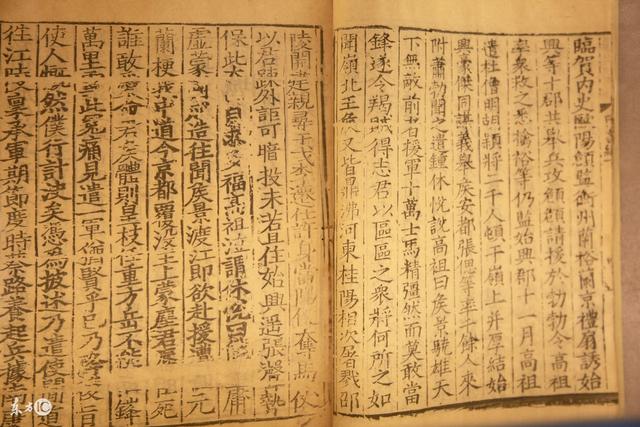 臨賀內史歐陽頠監衡州蘭裕蘭京禮扇誘始
興等十郡共舉兵攻頠頠請援於勃勃令高祖
率衆救之悉擒裕等仍監始興郡十一月高祖
遣杜僧明胡穎將二千人頓于嶺上并厚結始
興豪傑同謀義舉侯安都張偲等率千餘人來
附蕭勃聞之遣鍾休悅說高祖曰侯景驍雄天
下無敵前者援軍十萬士馬精彊然而莫敢當
鋒遂令羯賊得志君以區區之衆將何所之如
聞嶺北王侯又皆鼎沸河東桂陽相次屠戮邵
陵開建親尋干戈李遷仕許身當陽便奪馬仗
以君疎外詎可暗投未若且住始興遙張聲勢
保此太山自求多福高祖泣謂休悅曰僕本庸
虛蒙國成造往聞侯景渡江即欲赴援遭值元
蘭梗我中道今京都覆沒主上蒙塵君辱臣死
誰敢愛命君侯體則皇枝任重方岳不能摧鋒
萬里雪此冤痛見遣一軍猶賢乎已乃降後旨
使人慨然僕行計決矣憑為披述乃遣使間道
往江陵稟承軍期節度時蔡路養起兵據南康
东方IC